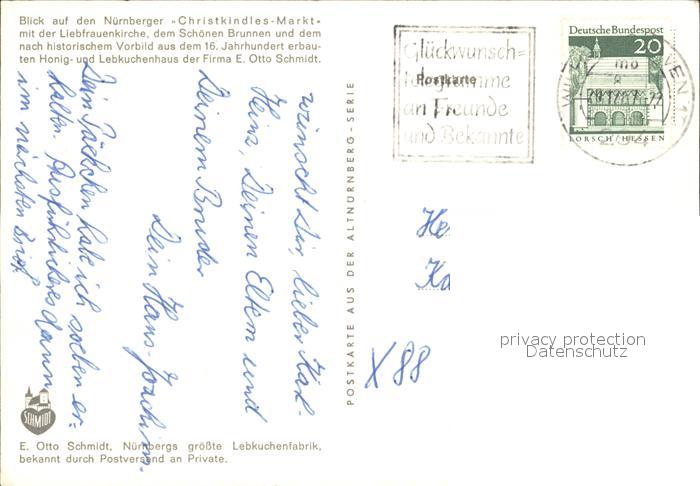 Blick auf den Nürnberger »Christkindles-Markt«
mit der Liebfrauenkirche, dem Schönen Brunnen und dem
nach historischem Vorbild aus dem 16. Jahrhundert erbau-
ten Honig- und Lebkuchenhaus der Firma E. Otto Schmidt.
wünscht Dir, lieber Karl-
Heinz, Deinen Eltern und
Deinem Bruder
Dein Hans-Joachim.
Dein Päckchen habe ich soeben er-
halten. Ausführlicheres dann
im nächsten Brief
SCHMIDT
E. Otto Schmidt, Nürnbergs größte Lebkuchenfabrik,
bekannt durch Postversand an Private.
POSTKARTE AUS DER ALTNÜRNBERG-SERIE
Glückwunsch=
telegramme
an Freunde
und Bekannte
Postkarte
Deutsche Bundespost
20
LORSCH/HESSEN
He
Ka
X 88
privacy protection
Datenschutz